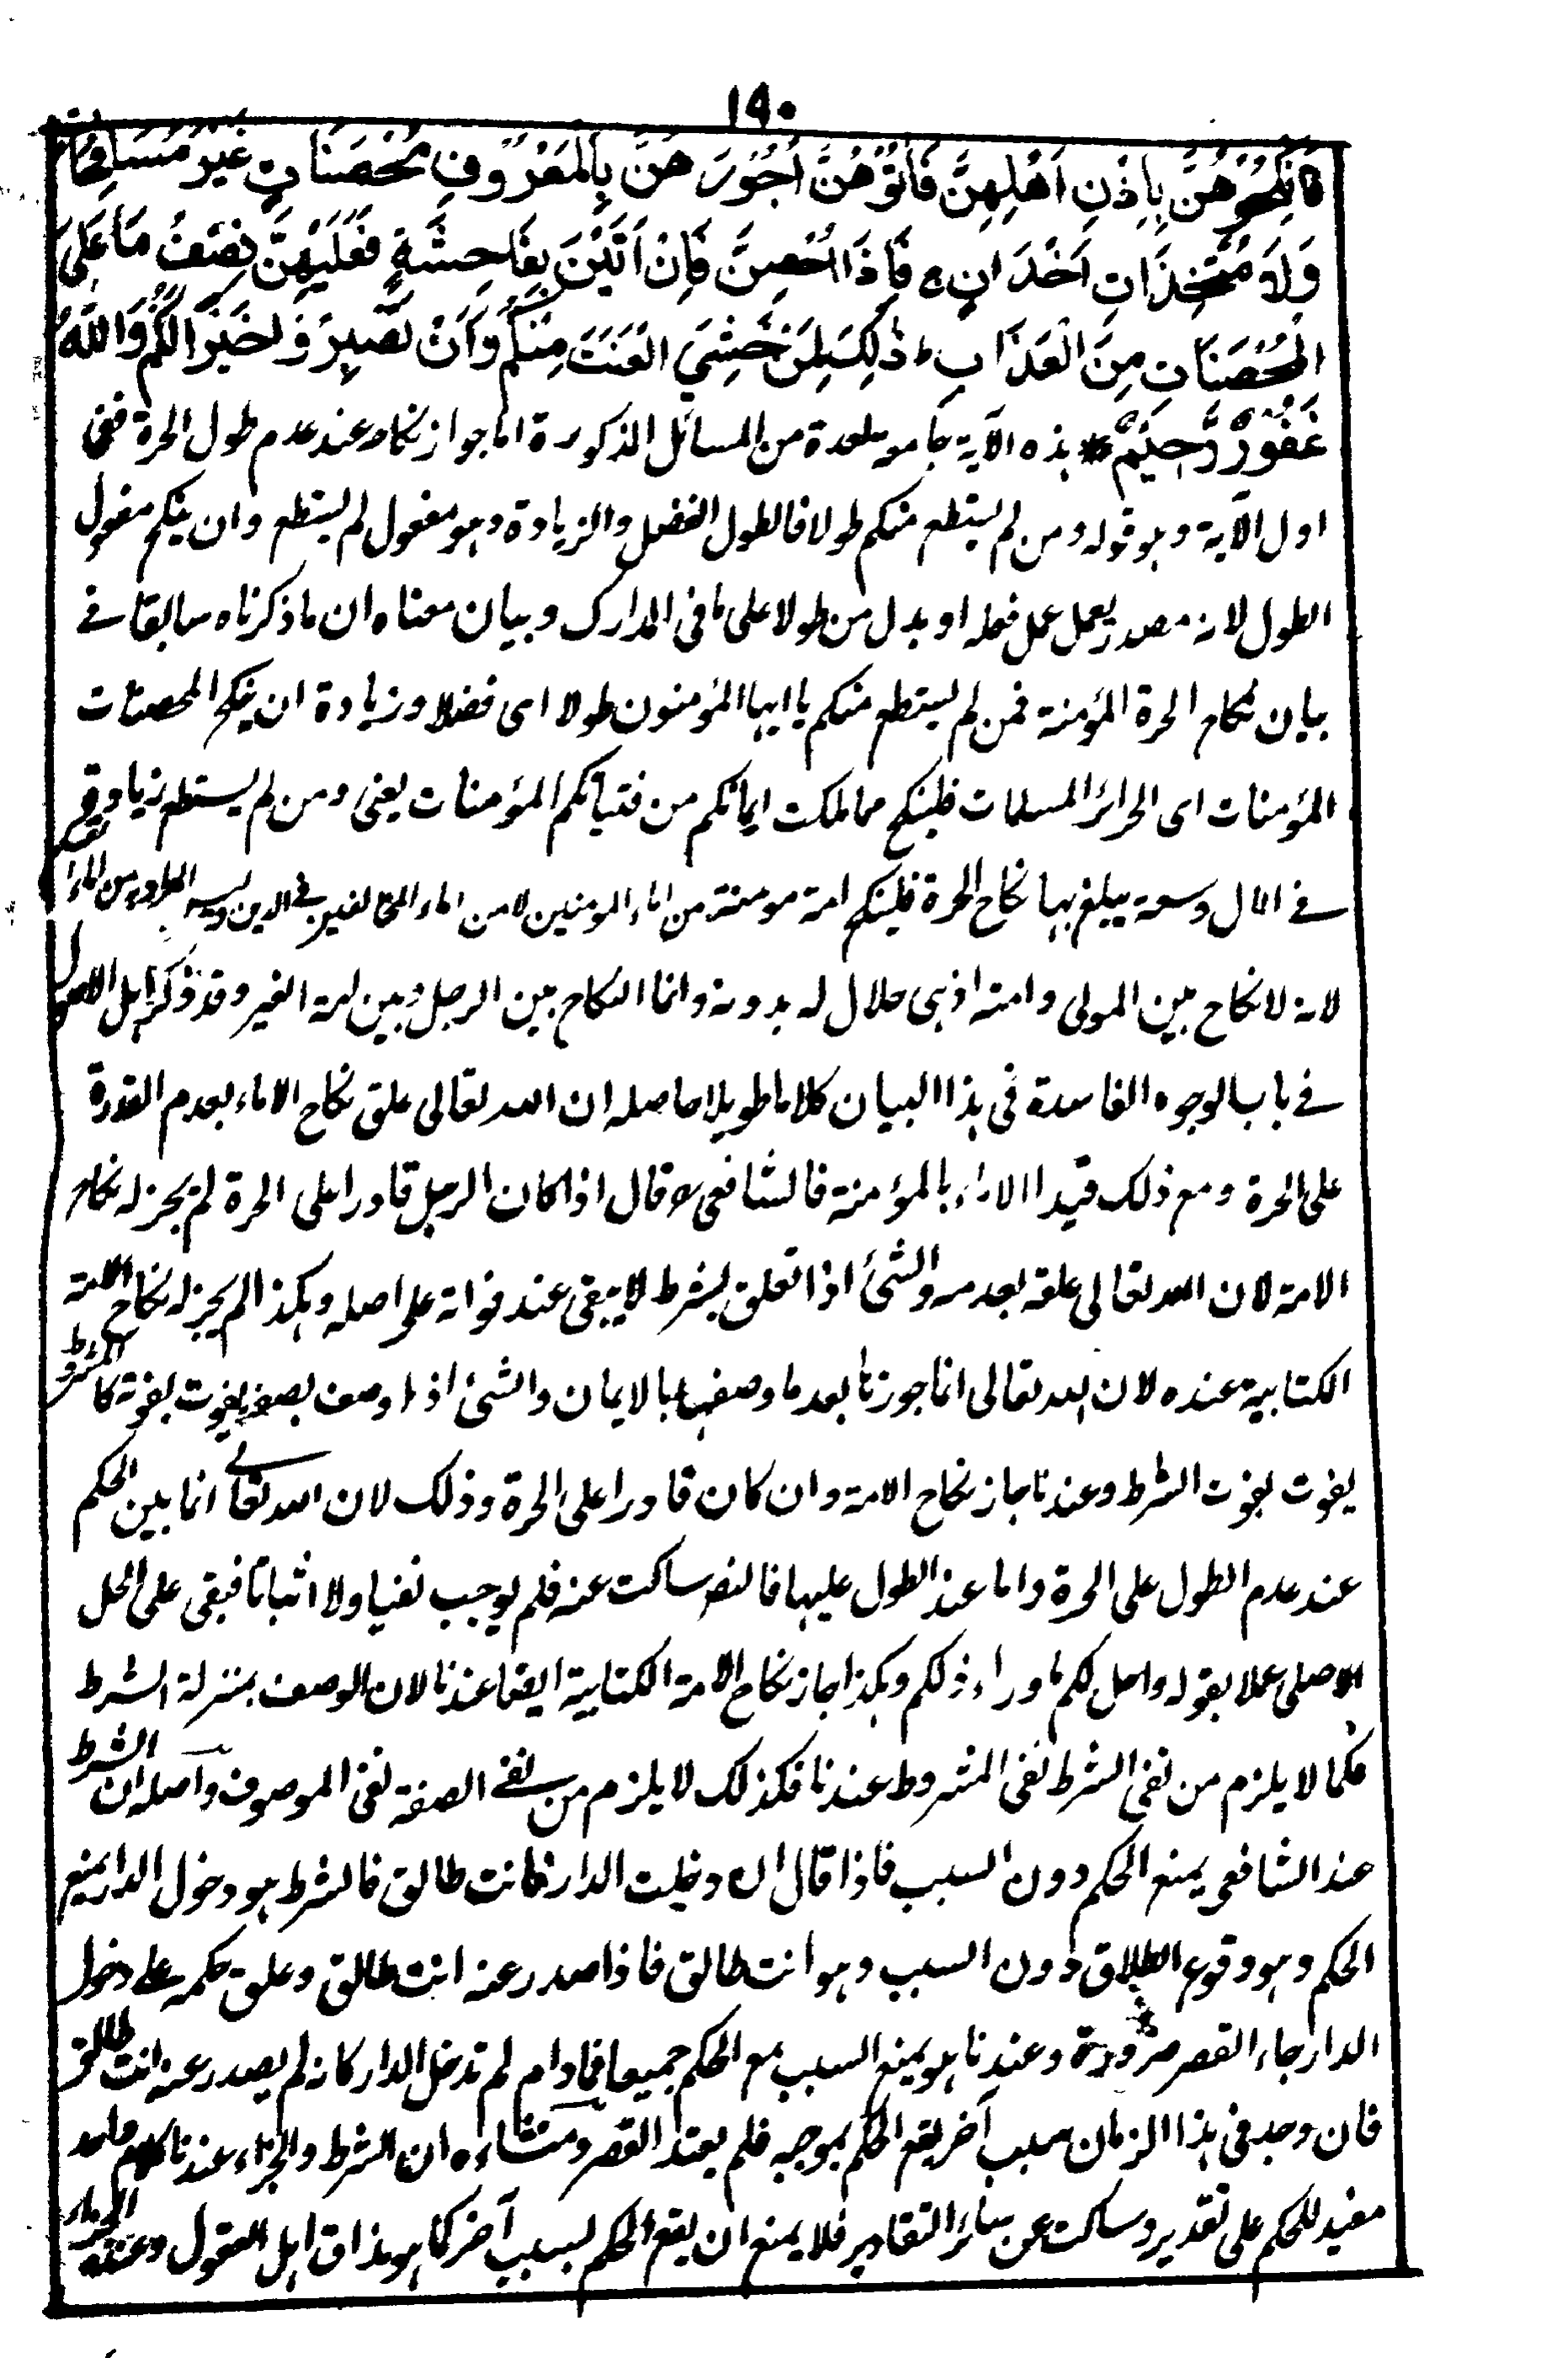 ۱۹۰
فَانْكِحُوْهُنَّ بِاِذْنِ اَهْلِهِنَّ فَاٰتُوْهُنَّ اُجُوْرَهُنَّ بِالْمَعْرُوْفِ مُحْصَنَاتٍ غَيْرَ مُسَافِحَاتٍ
وَلَا مُتَّخِذَاتِ اَخْدَانٍ ج فَاِذَا اُحْصِنَّ فَاِنْ اَتَيْنَ بِفَاحِشَةٍ فَعَلَيْهِنَّ نِصْفُ مَا عَلَى
الْمُحْصَنَاتِ مِنَ الْعَذَابِ ط ذٰلِكَ لِمَنْ خَشِيَ الْعَنَتَ مِنْكُمْ وَاَنْ تَصْبِرُوْا خَيْرٌ لَّكُمْ وَاللّٰهُ
غَفُوْرٌ رَّحِيْمٌ * ہذہ الآیۃ جامعۃ لعدۃ من المسائل المذکورۃ اما جواز نکاحہ عند عدم طول الحرۃ ففی
اول الآیۃ وہو قولہ ومن لم یستطع منکم طولا فالطول الفضل والزیادۃ وہو مفعول لم یستطع وان ینکح مفعول
الطول لانہ مصدر یعمل عمل فعلہ او بدل من طولا علی ما فی المدارک وبیان معناہ ان ما ذکرناہ سابقا فے
بیان نکاح الحرۃ المؤمنۃ فمن لم یستطع منکم یا ایہا المؤمنون طولا ای فضلا وزیادۃ ان ینکح المحصنات
المؤمنات ای الحرائر المسلمات فلینکح مما ملکت ایمانکم من فتیاتکم المؤمنات یعنی ومن لم یستطع زیادۃ
فے المال وسعۃ یبلغ بہا نکاح الحرۃ فلینکح امۃ مومنۃ من اماء المومنین لا من اماء المخالفین فی الدین ولیس المراد من الماء
لانہ لا نکاح بین المولی وامتہ اذ ہی حلال لہ بدونہ وانما النکاح بین الرجل وبین امۃ الغیر وقد ذکر اہل الاصول
فے باب الوجوہ الفاسدۃ فی ہذا البیان کلاما طویلا حاصلہ ان اللہ تعالی علق نکاح الاماء بعدم القدرۃ
علی الحرۃ ومع ذلک قید الاماء بالمؤمنۃ فالشافعی رح قال اذا کان الرجل قادرا علی الحرۃ لم یجز لہ نکاح
الامۃ لان اللہ تعالی علقہ بعدمہ والشئ اذا تعلق بشرط لا یبقی عند فواتہ علی اصلہ وہکذا لم یجز لہ نکاح الامۃ
الکتابیۃ عندہ لان اللہ تعالی انما جوزہا بعد ما وصفہا بالایمان والشئ اذا وصف بصفۃ یفوت بفوتہ کالمشروط
یفوت بفوت الشرط وعندنا جاز نکاح الامۃ وان کان قادرا علی الحرۃ وذلک لان اللہ تعالے انما بین الحکم
عند عدم الطول علی الحرۃ واما عند الطول علیہا فالنص ساکت عنہ فلم یوجب نفیا ولا اثباتا فبقی علی الحل
الاصلی عملا بقولہ واحل لکم ما وراء ذلکم وہکذا جاز نکاح الامۃ الکتابیۃ ایضا عندنا لان الوصف بمنزلۃ الشرط
فکما لا یلزم من نفی الشرط نفی المشروط عندنا فکذلک لا یلزم من نفے الصفۃ نفی الموصوف واصلہ ان الشرط
عند الشافعی یمنع الحکم دون السبب فاذا قال ان دخلت الدار فانت طالق فالشرط ہو دخول الدار یمنع
الحکم وہو وقوع الطلاق دون السبب وہو انت طالق فاذا صدر عنہ انت طالق وعلق حکمہ علے دخول
الدار جاء القصر ضرورۃ وعندنا ہو یمنع السبب مع الحکم جمیعا فما دام لم تدخل الدار کانہ لم یصدر عنہ انت طالق
فان وجد فی ہذا الزمان سبب آخر یقع الحکم بموجبہ فلم یعتد القصر ومنشاءہ ان الشرط والجزاء عندنا کلام واحد
مفید للحکم علی تقدیر وساکت عن سائر التقادیر فلا یمنع ان یقع الحکم لسبب آخر کما ہو مذاق اہل العقول وعندہ الجزاء